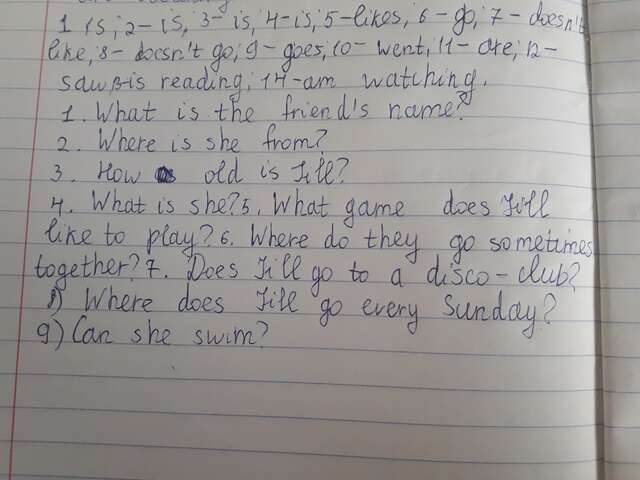 1 is; 2-is, 3-is, 4-is, 5-likes, 6-go, 7-doesn't
like, 8-doesn't go, 9-goes, 10-went, 11-are, 12-
saw 13-is reading, 14-am watching.
1. What is the friend's name?
2. Where is she from?
3. How old is Jill?
4. What is she? 5. What game does Jill
like to play? 6. Where do they go sometimes
together? 7. Does Jill go to a disco-club?
8) Where does Jill go every Sunday?
9) Can she swim?